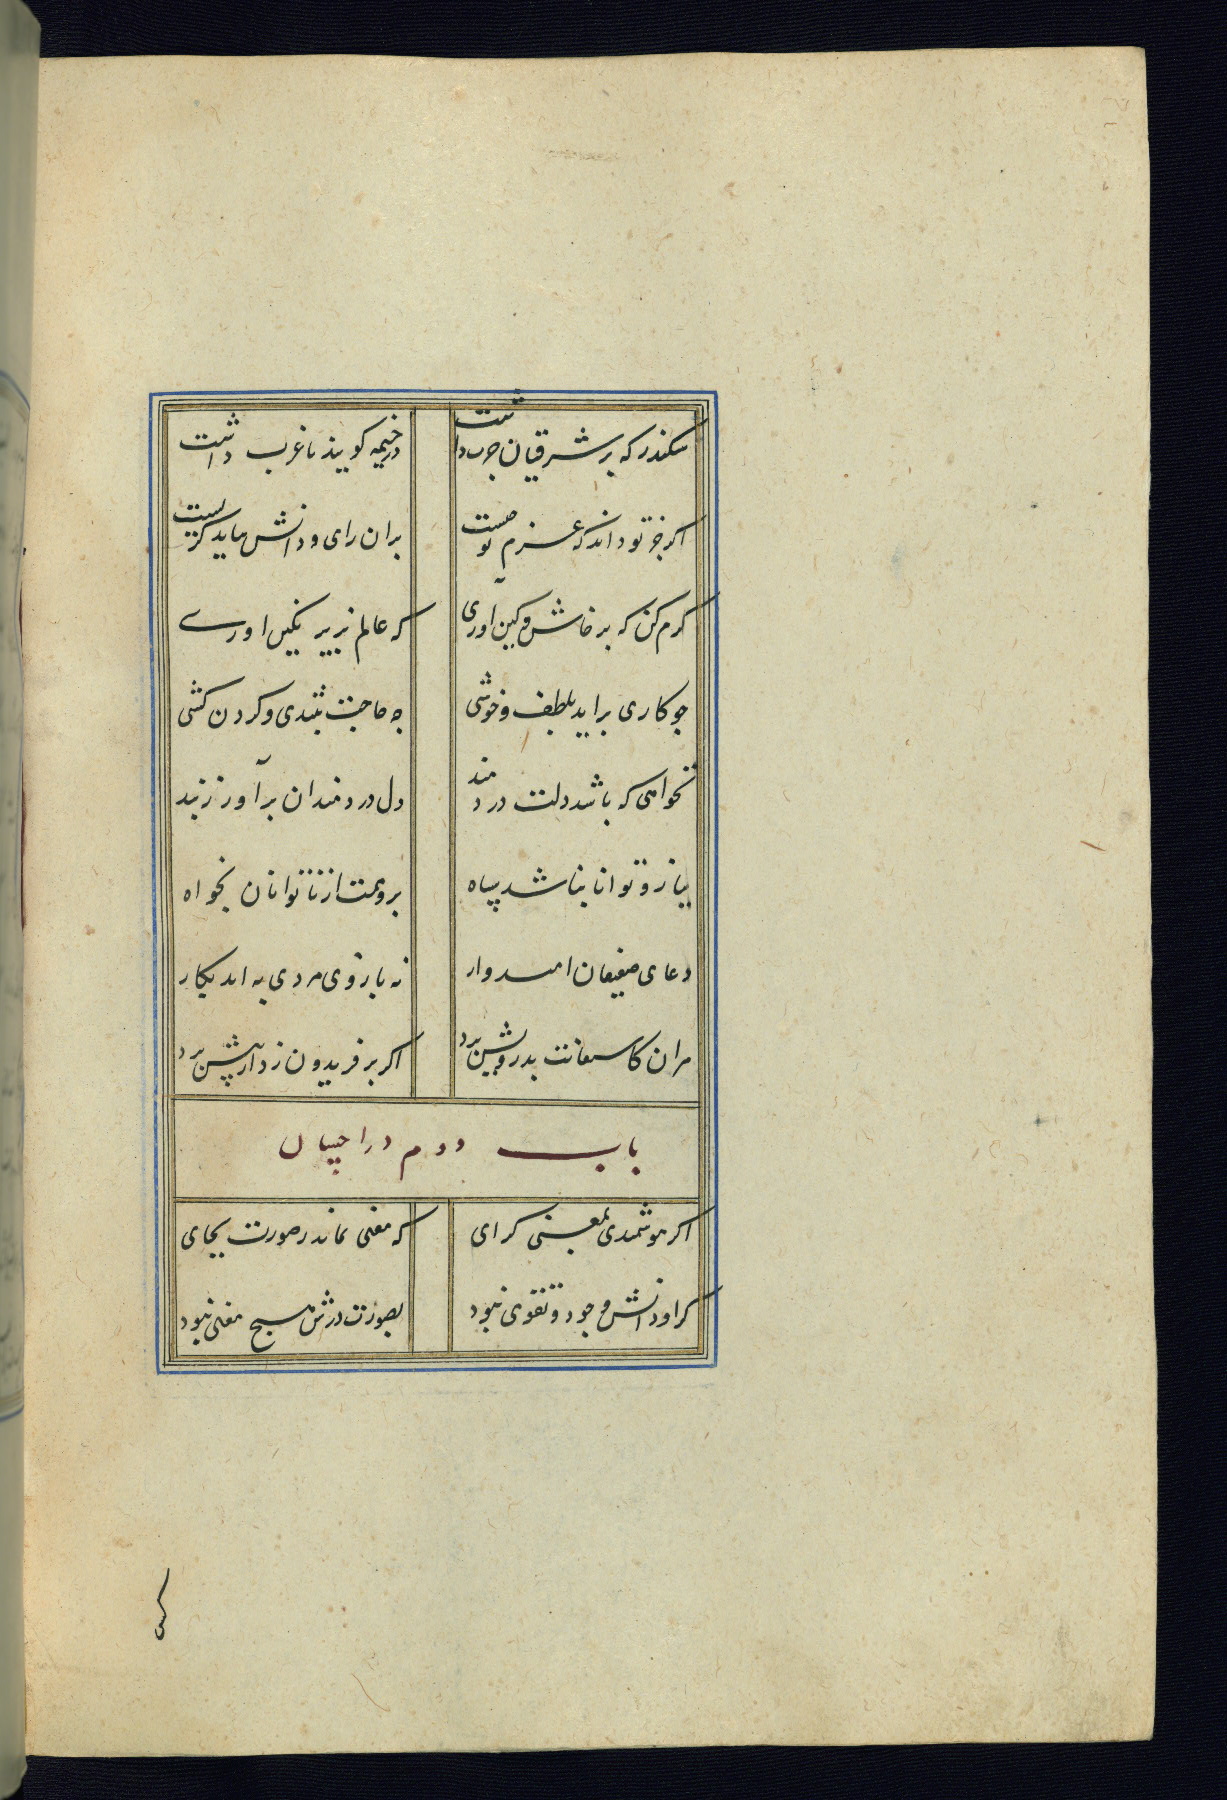 سکندر که بر شرقیان حرب داشت
در خیمه گویند با غرب داشت
اگر جز تو داند که عزم تو چیست
بران رای و دانش بباید گریست
کرم کن که پرخاش و کین آوری
که عالم بزیر نگین آوری
چو کاری براید بلطف و خوشی
چه حاجت بتندی و گردن کشی
نخواهی که باشد دلت دردمند
دل دردمندان برآور ز بند
ببازو توانا نباشد سپاه
برو همت از ناتوانان بخواه
دعای ضعیفان امیدوار
ز بازوی مردی به اید بکار
هر ان کاستعانت بدرویش برد
اگر بر فریدون زد از پیش برد
باب دوم در احسان
اگر هوشمندی بمعنی گرای
که معنی بماند ز صورت بجای
کرا دانش و جود و تقوی نبود
بصورت درش هیچ معنی نبود
کسی